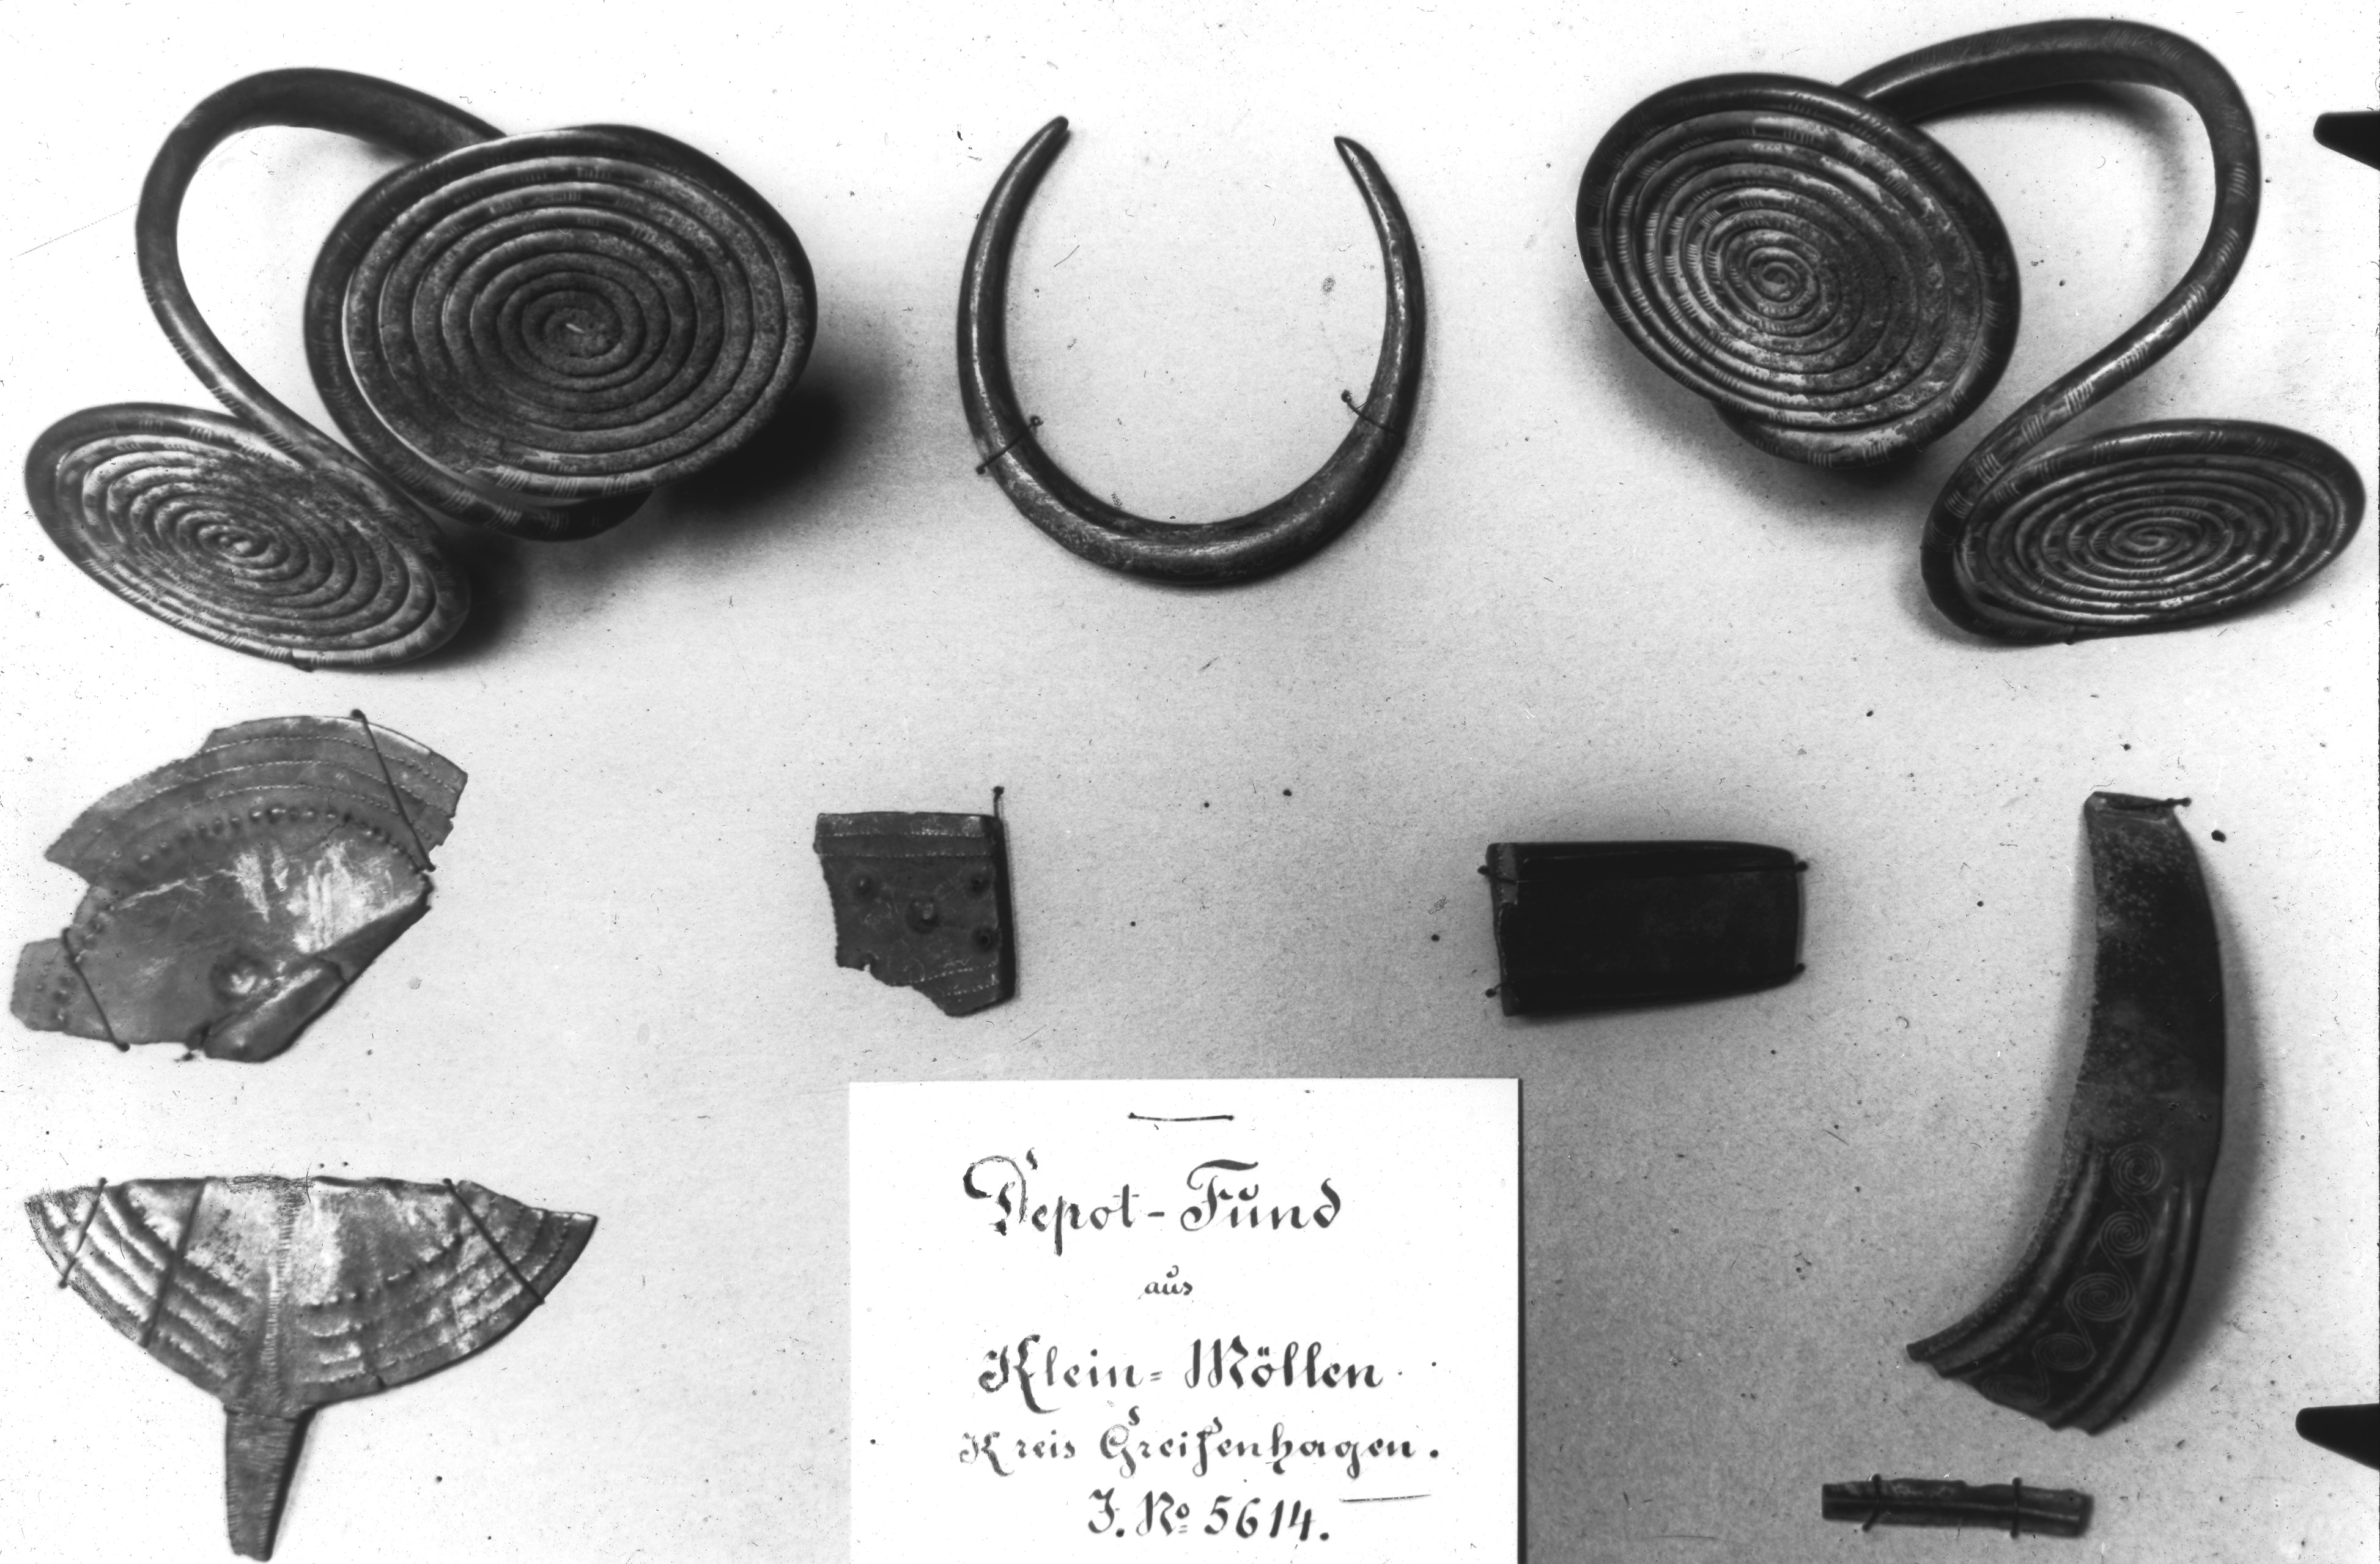 Depot-Fund
aus
Klein-Möllen
Kreis Greifenhagen.
J. No 5614.